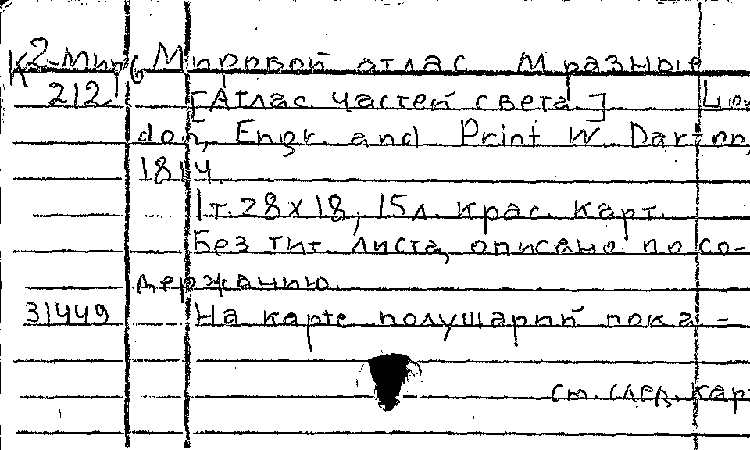 К2-Мир/6 Мировой атлас М разные
212. [Атлас частей света.] Lon-
don, Engr. and Print W. Darton,
1814.
1 т. 28х18, 15 л. крас. карт.
Без тит. листа, описано по со-
держанию.
31449 На карте полушарий пока-
см. след. кар